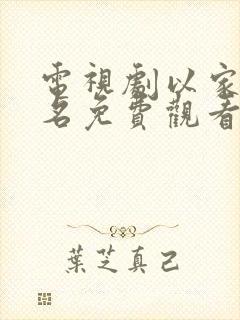 電視劇以家
名免費觀看
葉芝真己